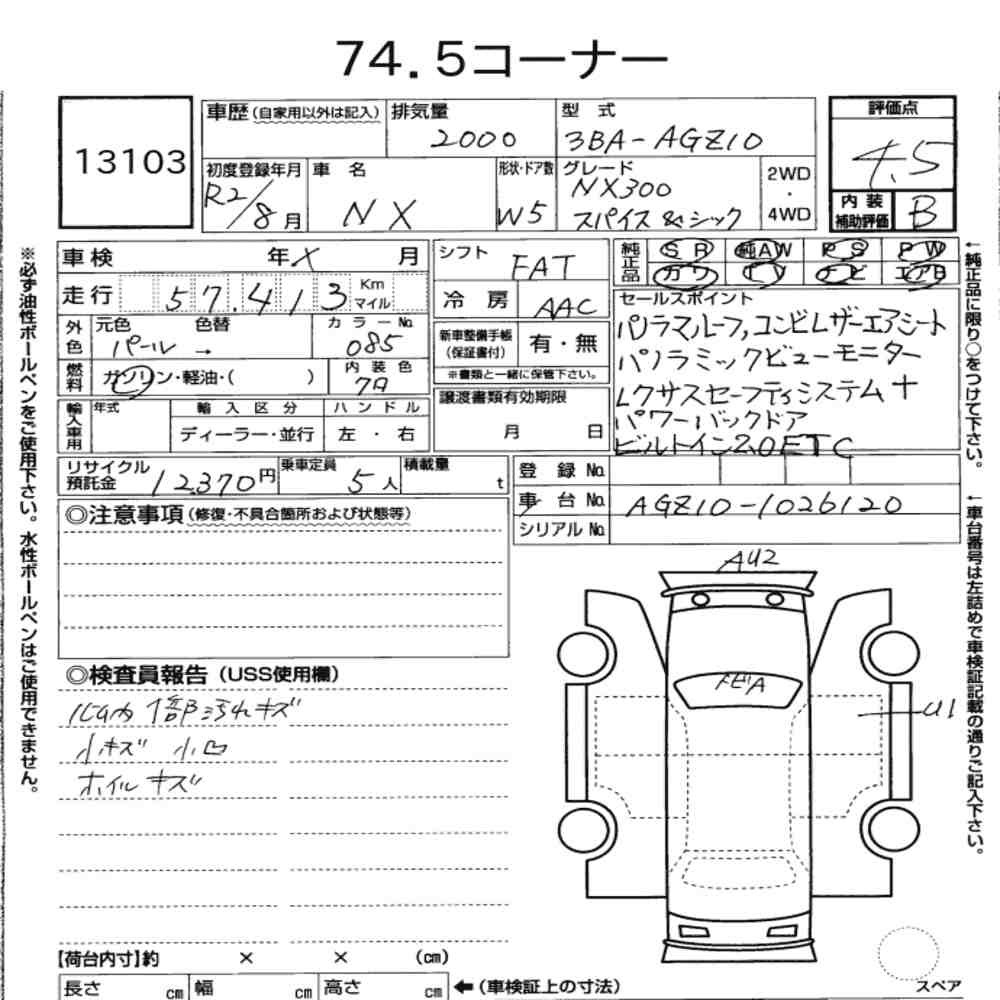 74.5コーナー
13103
車歴(自家用以外は記入) 排気量 2000 型 式 3BA-AGZ10
初度登録年月 R2/8月 車 名 NX 形状・ドア数 W5 グレード NX300 スパイス&シック 2WD・4WD
評価点 4.5
内装補助評価 B
車検 年 X 月
走行 57,413 Km マイル
外色 元色 パール → 色替 カラーNo. 085
燃料 ガソリン・軽油・( ) 内装色 7A
輸入車用 年式 輸入区分 ディーラー・並行 ハンドル 左・右
リサイクル預託金 12370円 乗車定員 5人 積載量 t
シフト FAT
冷 房 AAC
新車整備手帳(保証書付) 有・無
※書類と一緒に保管下さい。
譲渡書類有効期限
月 日
純正品 SR 純AW PS PW
カワ TV ナビ エアB
セールスポイント
パノラマルーフ,コンビレザーエアシート
パノラミックビューモニター
レクサスセーフティシステム+
パワーバックドア
ビルトイン2.0ETC
登 録 No.
車 台 No. AGZ10-1026120
シリアル No.
◎注意事項(修復・不具合箇所および状態等)
◎検査員報告(USS使用欄)
小キズ 小凹
ホイルキズ
AU2
トビA
U1
スペア
【荷台内寸】約 × × (cm)
長さ cm 幅 cm 高さ cm ←(車検証上の寸法)
※必ず油性ボールペンをご使用下さい。水性ボールペンはご使用できません。
←純正品に限り○をつけて下さい。
←車台番号は左詰めで車検証記載の通りご記入下さい。